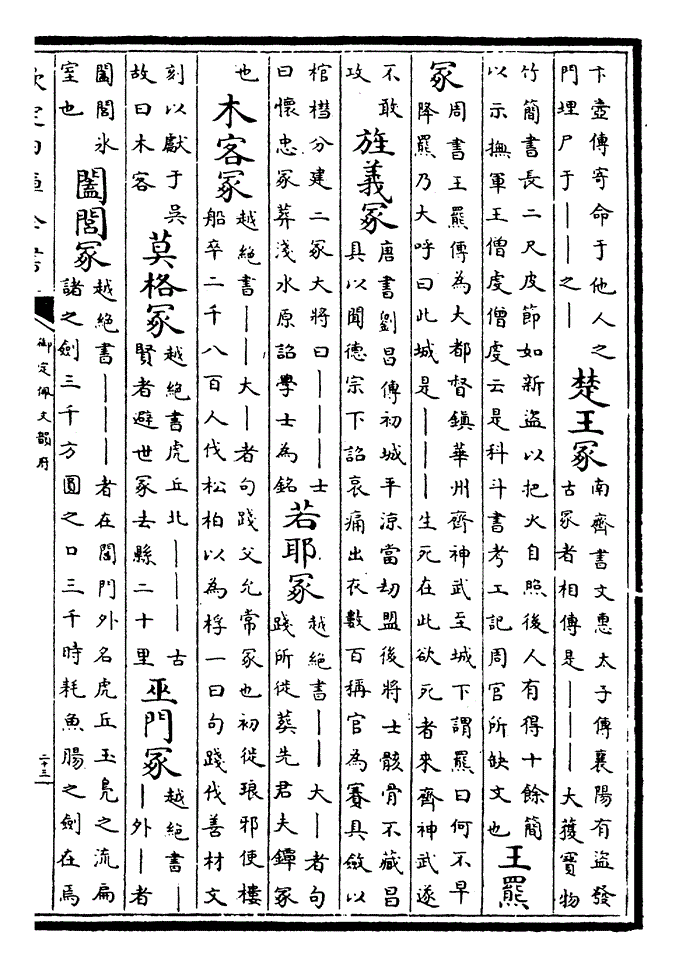 卞壼傳寄命于他人之
門埋尸于——之—
楚王冢
南齊書文惠太子傳襄陽有盜發
古冢者相傳是———大獲寶物
竹簡書長二尺皮節如新盜以把火自照後人有得十餘簡
以示撫軍王僧虔僧虔云是科斗書考工記周官所缺文也
王羆
冢
周書王羆傳為大都督鎮華州齊神武至城下謂羆曰何不早
降羆乃大呼曰此城是———生死在此欲死者來齊神武遂
不敢
攻
旌義冢
唐書劉昌傳初城平涼當劫盟後將士骸骨不藏昌
具以聞德宗下詔哀痛出衣數百稱官為賽具斂以
棺槥分建二冢大將曰———士
曰懷忠冢葬淺水原詔學士為銘
若耶冢
越絕書——大—者句
踐所徙葬先君夫鐔冢
也
木客冢
越絕書——大—者句踐父允常冢也初徙琅邪使樓
船卒二千八百人伐松柏以為桴一曰句踐伐善材文
刻以獻于吳
故曰木客
莫格冢
越絕書虎丘北———古
賢者避世冢去縣二十里
巫門冢
越絕書—
—外—者
闔閭氷
室也
闔閭冢
越絕書———者在閶門外名虎丘玉鳧之流扁
諸之劍三千方圓之口三千時耗魚腸之劍在焉
欽定四庫全書
御定佩文韻府
二十三